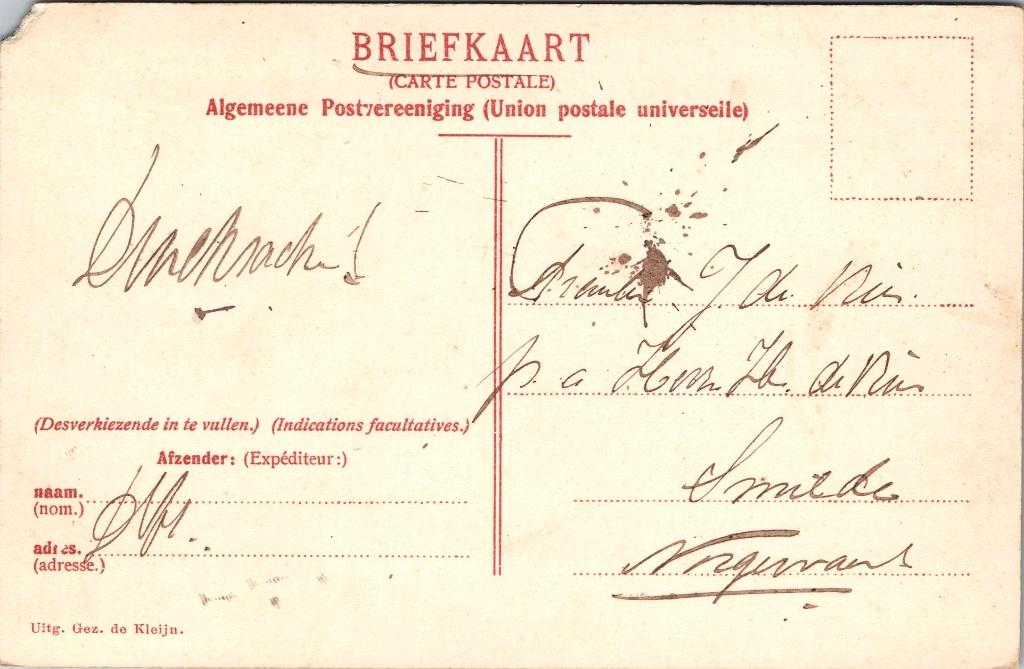 BRIEFKAART
(CARTE POSTALE)
Algemeene Postvereeniging (Union postale universelle)
Drukwerk!
J de Vries.
p. a Heer H. de Vries
Smilde
Norgervaart
(Desverkiezende in te vullen.) (Indications facultatives.)
Afzender: (Expéditeur:)
naam.
(nom.)
adres.
(adresse.)
Uitg. Gez. de Kleijn.